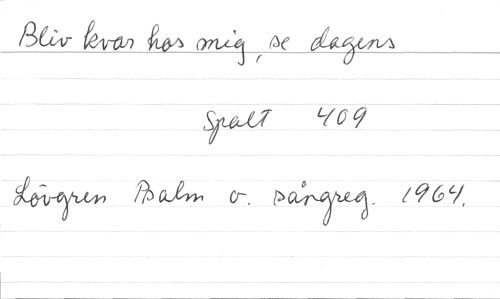 Bliv kvar hos mig, se dagens
Spalt 409
Lövgren Psalm o. sångreg. 1964.